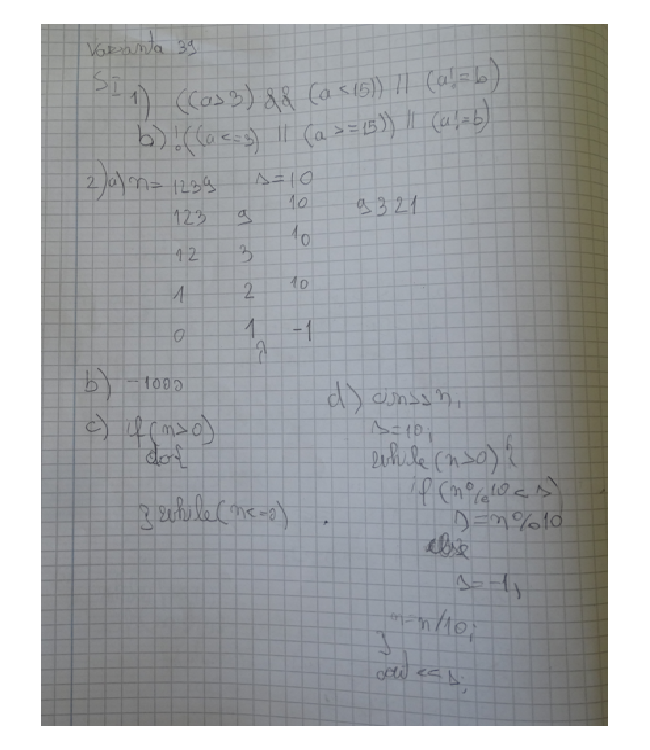 Varianta 39
SI
1) ((a>3) && (a<15)) || (a!=b)
b) !((a<=3) || (a>=15)) || (a!=b)
2) a) n=1239 s=10
123 9 10 9321
12 3 10
1 2 10
0 1 -1
b) -1000
c) if(n>0)
do{
}while(n<=0)
d) cin>>n;
s=10;
while(n>0){
if(n%10<s)
s=n%10
else
s=-1;
n=n/10;
}
cout<<s;